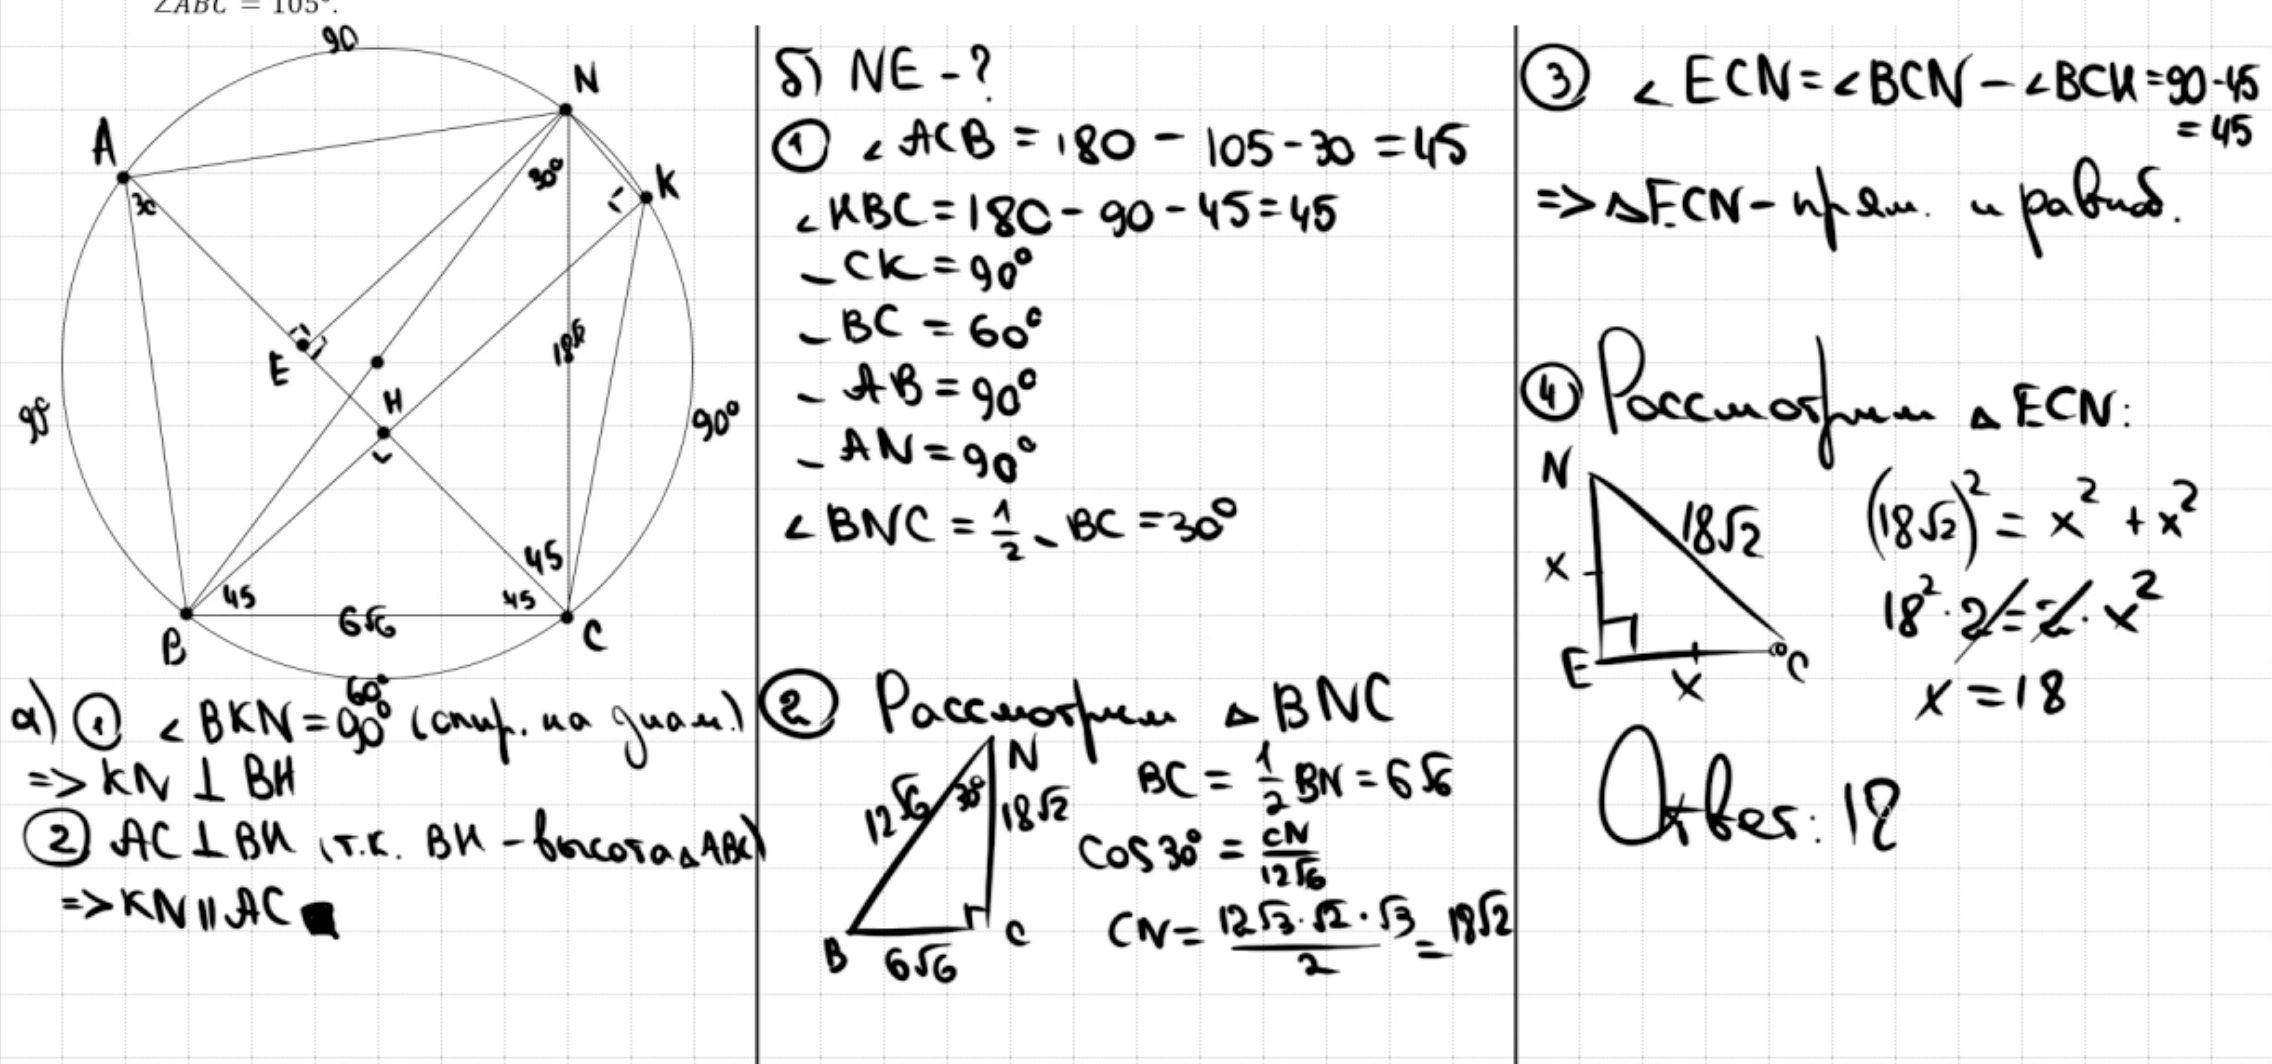 ∠ABC = 105°.
90
N
A
30
30°
K
E
18√2
H
90°
90°
45
45
45
6√6
B
C
60°
а) ① ∠BKN = 90° (опир. на диам.)
=> KN ⊥ BH
② AC ⊥ BH (т.к. BH - высота △ABC)
=> KN || AC ■
б) NE - ?
① ∠ACB = 180 - 105 - 30 = 45
∠KBC = 180 - 90 - 45 = 45
◡CK = 90°
◡BC = 60°
◡AB = 90°
◡AN = 90°
∠BNC = 1/2 ◡BC = 30°
② Рассмотрим △BNC
N
30°
12√6
18√2
B
6√6
C
BC = 1/2 BN = 6√6
cos 30° = CN/12√6
CN = 12√3·√2·√3/2 = 18√2
③ ∠ECN = ∠BCN - ∠BCH = 90 - 45
= 45
=> △ECN - прям. и равноб.
④ Рассмотрим △ECN:
N
18√2
x
E
x
C
(18√2)² = x² + x²
18²·2 = 2·x²
x = 18
Ответ: 18